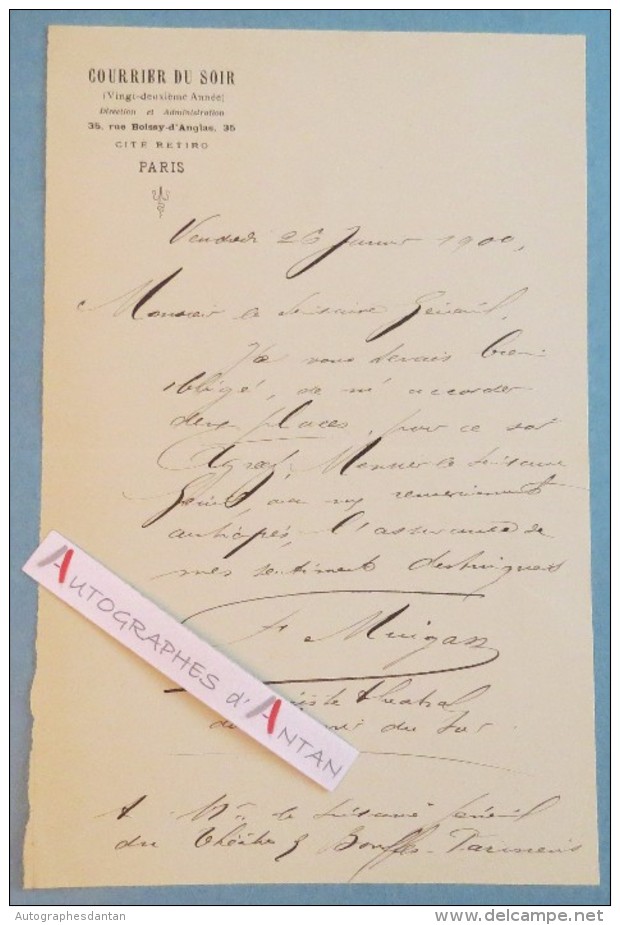 COURRIER DU SOIR
(Vingt-deuxième Année)
Direction et Administration
35, rue Boissy-d'Anglas, 35
CITÉ RETIRO
PARIS
Vendredi 26 Janvier 1900,
Monsieur le Secrétaire Général,
Je vous serais bien
obligé, de m'accorder
deux places, pour ce soir
Agréez, Monsieur le Secrétaire
Général, avec mes remerciements
anticipés, l'assurance de
mes sentiments distingués
AUTOGRAPHES d'ANTAN
théatral
du Soir.
A Mr. le Secrétaire général
du Théâtre des Bouffes-Parisiens
Autographesdantan
www.delcampe.net